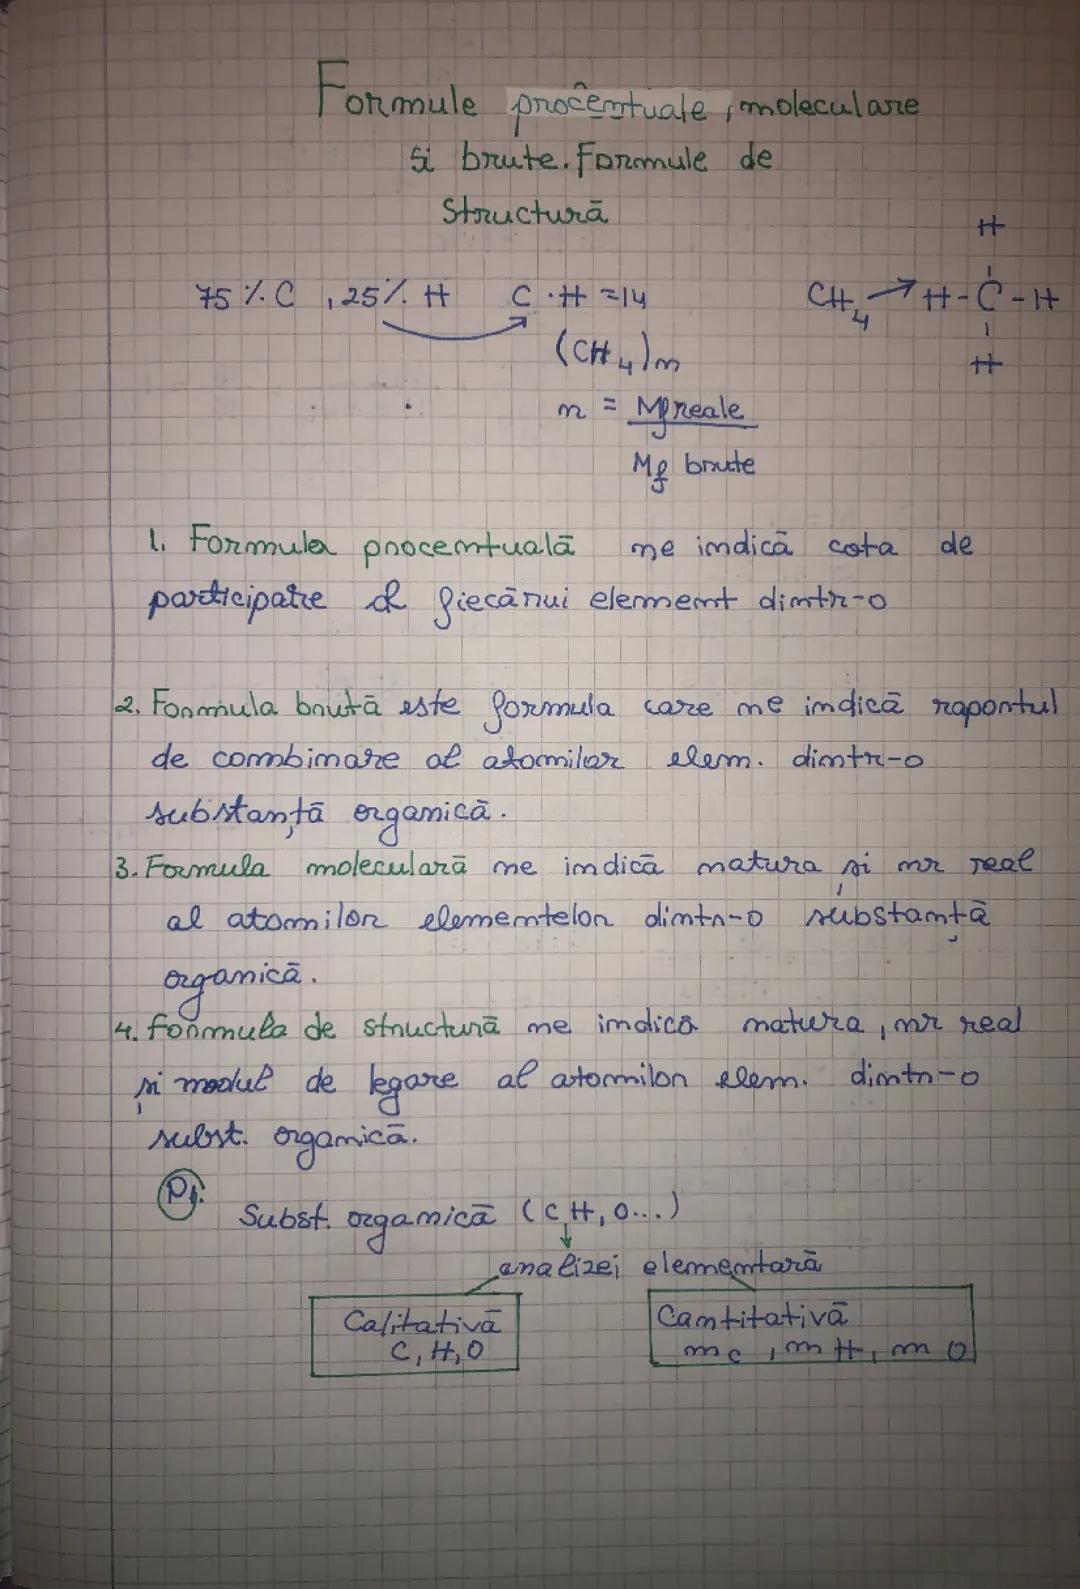 Formule procentuale, moleculare
si brute. Formule de
Structură
75 % C , 25 % H   C · H = 14   CH4 → H - C - H
H
H
(CH4)n
n = Mf reale
Mf brute
1. Formula procentuală ne indică cota de
participatie a fiecărui element dintr-o
2. Formula brută este formula care ne indică raportul
de combinare al atomilor elem. dintr-o
substanță organică.
3. Formula moleculară ne indică natura și nr real
al atomilor elementelor dintr-o substanță
organică.
4. formula de structură ne indică natura, nr real
și modul de legare al atomilor elem. dintr-o
subst. organică.
Subst. organică (C, H, O...)
↓
analizei elementară
Calitativă
C, H, O
Cantitativă
mC , m H, m O